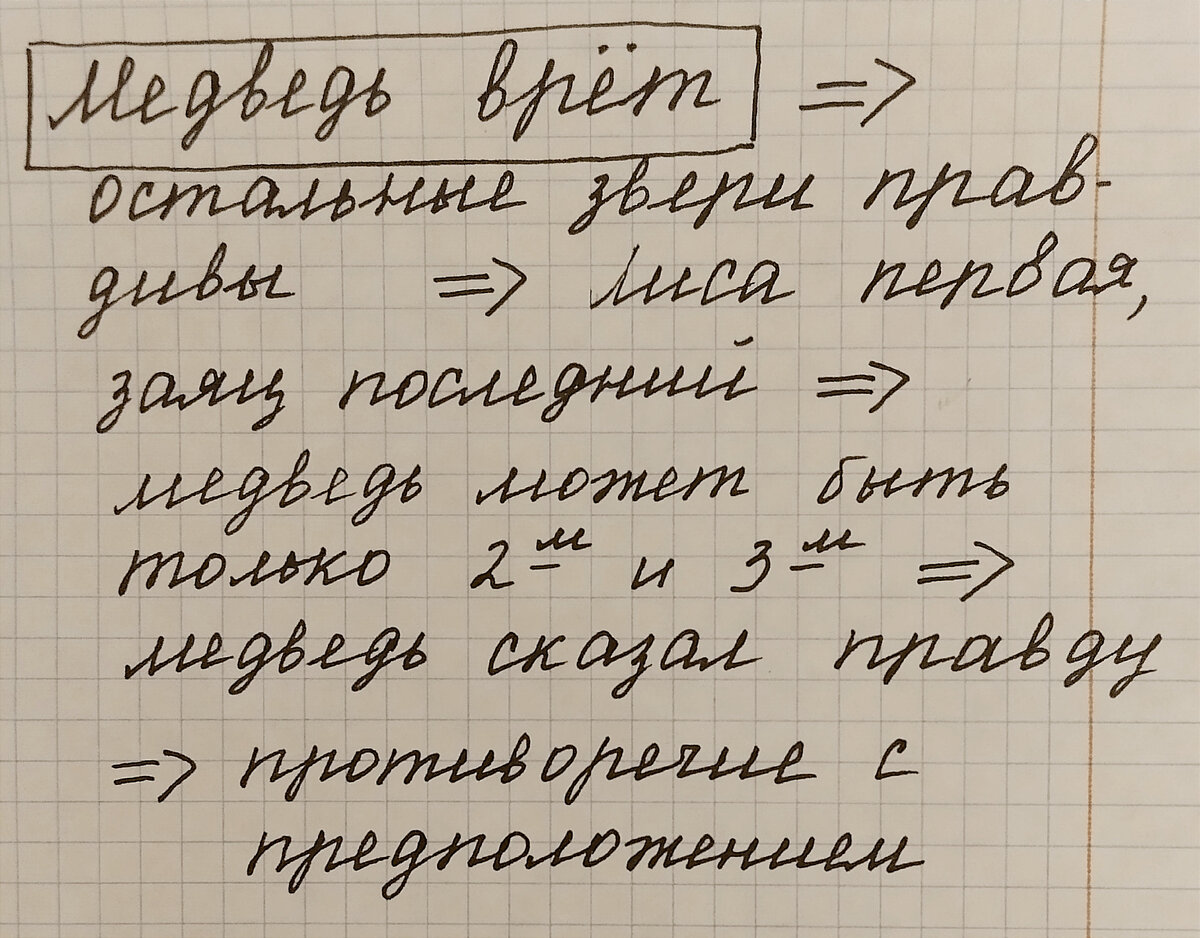 Медведь врёт =>
остальные звери прав-
дивы => лиса первая,
заяц последний =>
медведь может быть
только 2м и 3м =>
медведь сказал правду
=> противоречие с
предположением